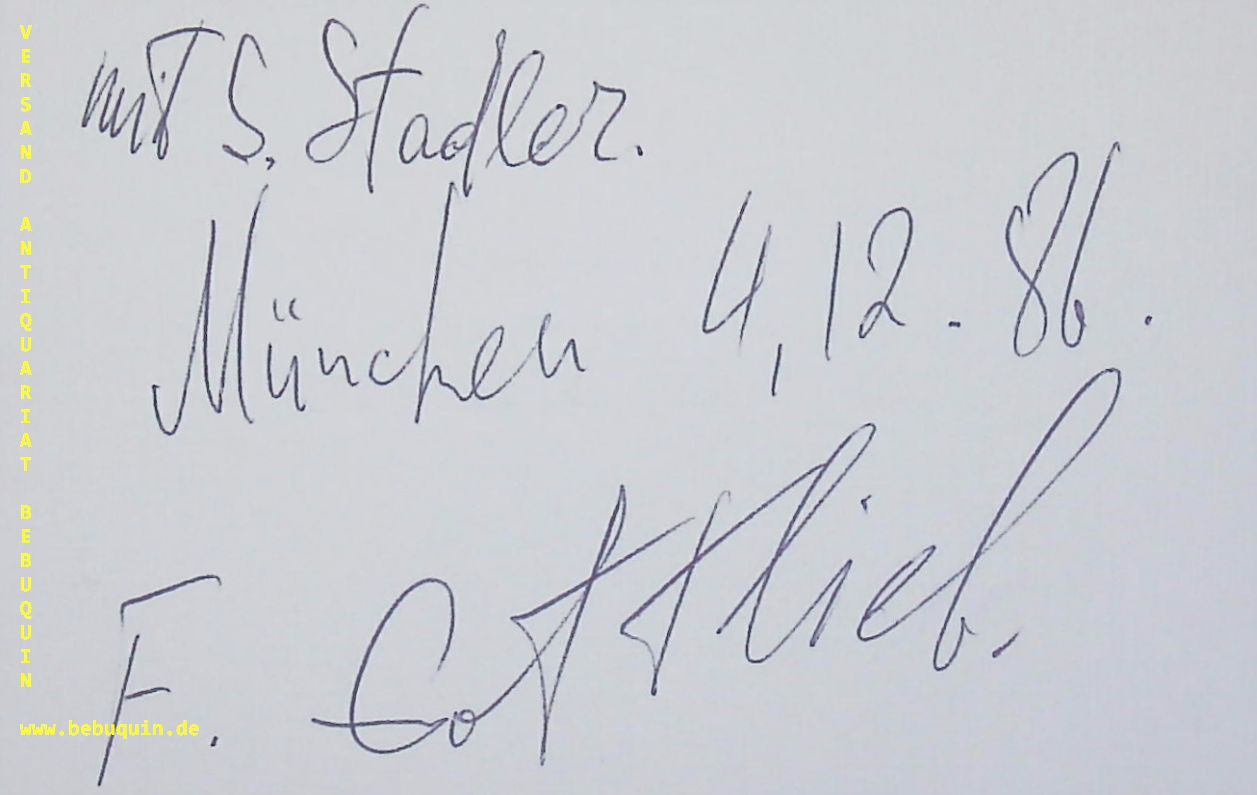 mit S. Stadler.
München 4,12.86.
F. Gottlieb.
VERSAND ANTIQUARIAT BEBUQUIN
www.bebuquin.de